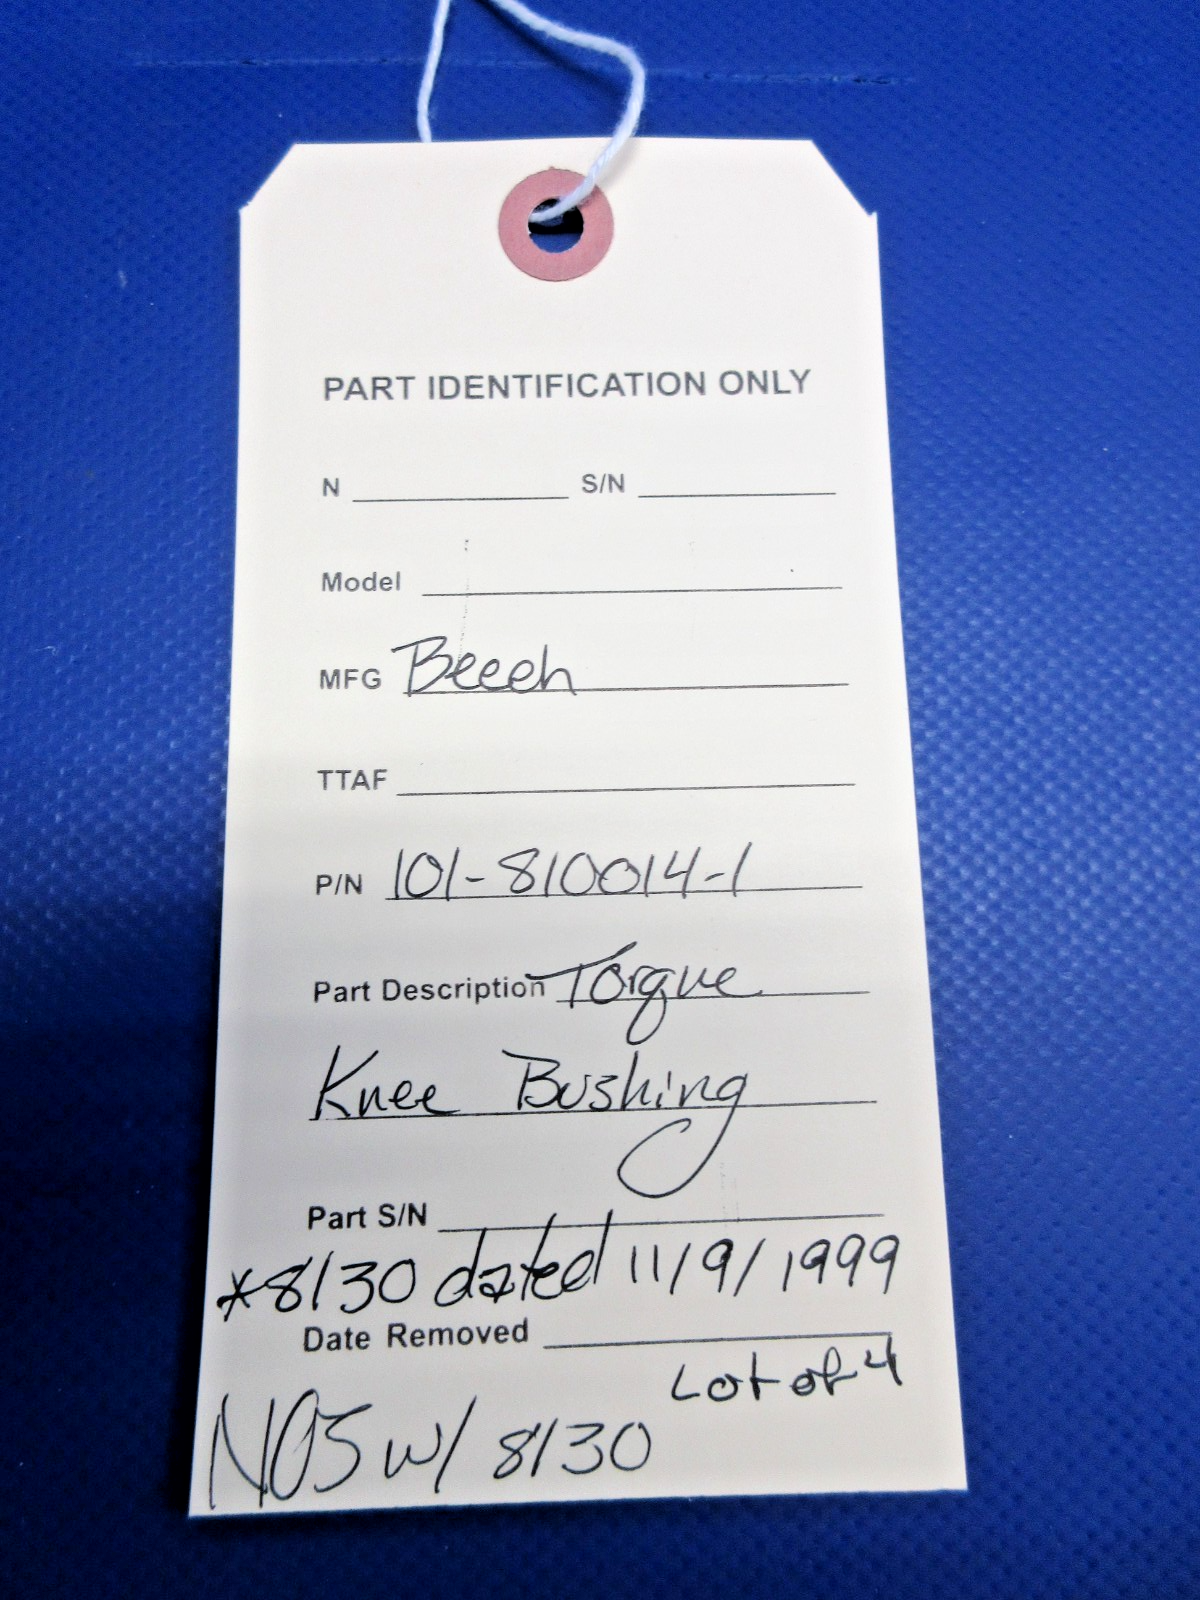 PART IDENTIFICATION ONLY
N S/N
Model
MFG Beech
TTAF
P/N 101-810014-1
Part Description Torque
Knee Bushing
Part S/N
*8130 dated 11/9/1999
Date Removed
Lot of 4
NOS w/ 8130